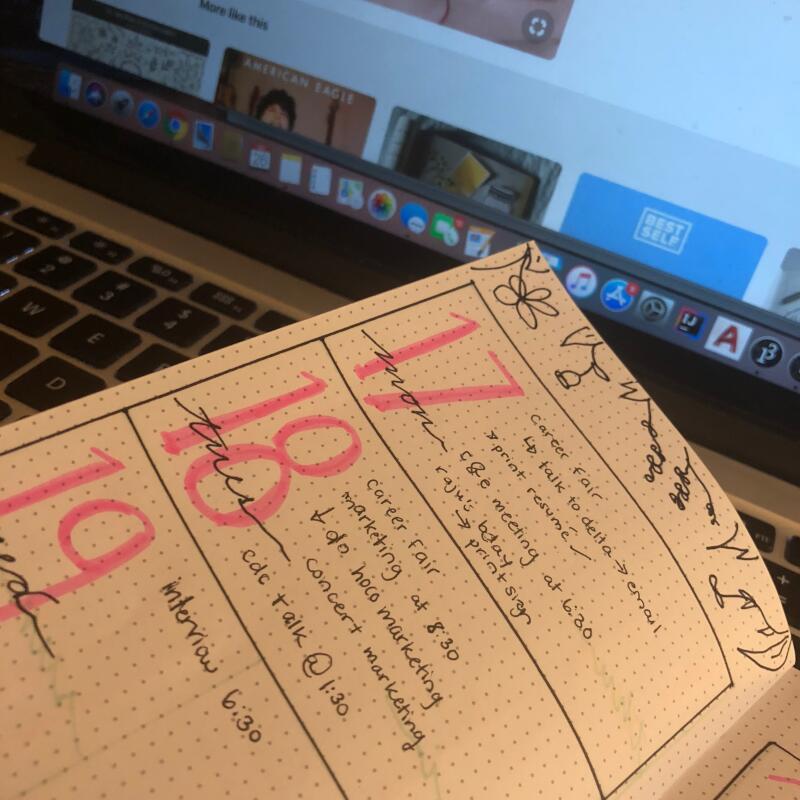 More like this
AMERICAN EAGLE
BEST
SELF
28
2
3
4
W
E
D
F11
17
mon
career fair
↳ talk to delta → email
→ print resume ✓
r&e meeting at 6:30
raju's bday
→ print sign
18
tues
career fair
marketing at 8:30
↓ do hoco marketing
concert marketing
cdc talk @ 1:30
19
wed
interview 6:30